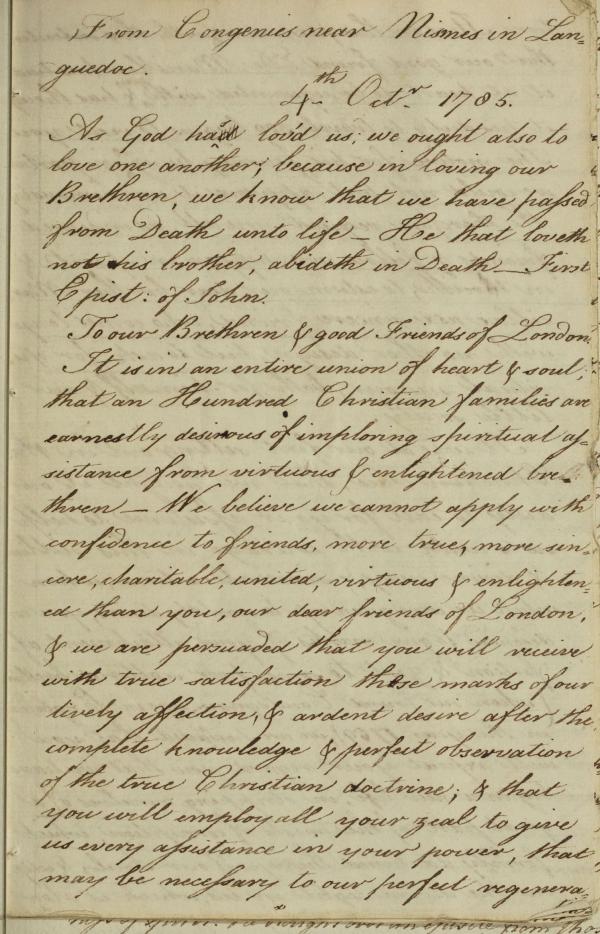 From Congenies near Nismes in Lan=
guedoc.
4th Octr. 1785.
As God hath lov'd us; we ought also to
love one another; because in loving our
Brethren, we know that we have passed
from Death unto life — He that loveth
not his brother, abideth in Death — First
Epist: of John.
To our Brethren & good Friends of London.
It is in an entire union of heart & soul,
that an Hundred Christian families are
earnestly desirous of imploring spiritual as=
sistance from virtuous & enlightened bre=
thren — We believe we cannot apply with
confidence to friends, more true, more sin=
cere, charitable, united, virtuous & enlighten=
ed than you, our dear friends of London,
& we are persuaded that you will receive
with true satisfaction these marks of our
lively affection, & ardent desire after the
complete knowledge & perfect observation
of the true Christian doctrine; & that
you will employ all your zeal to give
us every assistance in your power, that
may be necessary to our perfect regenera=